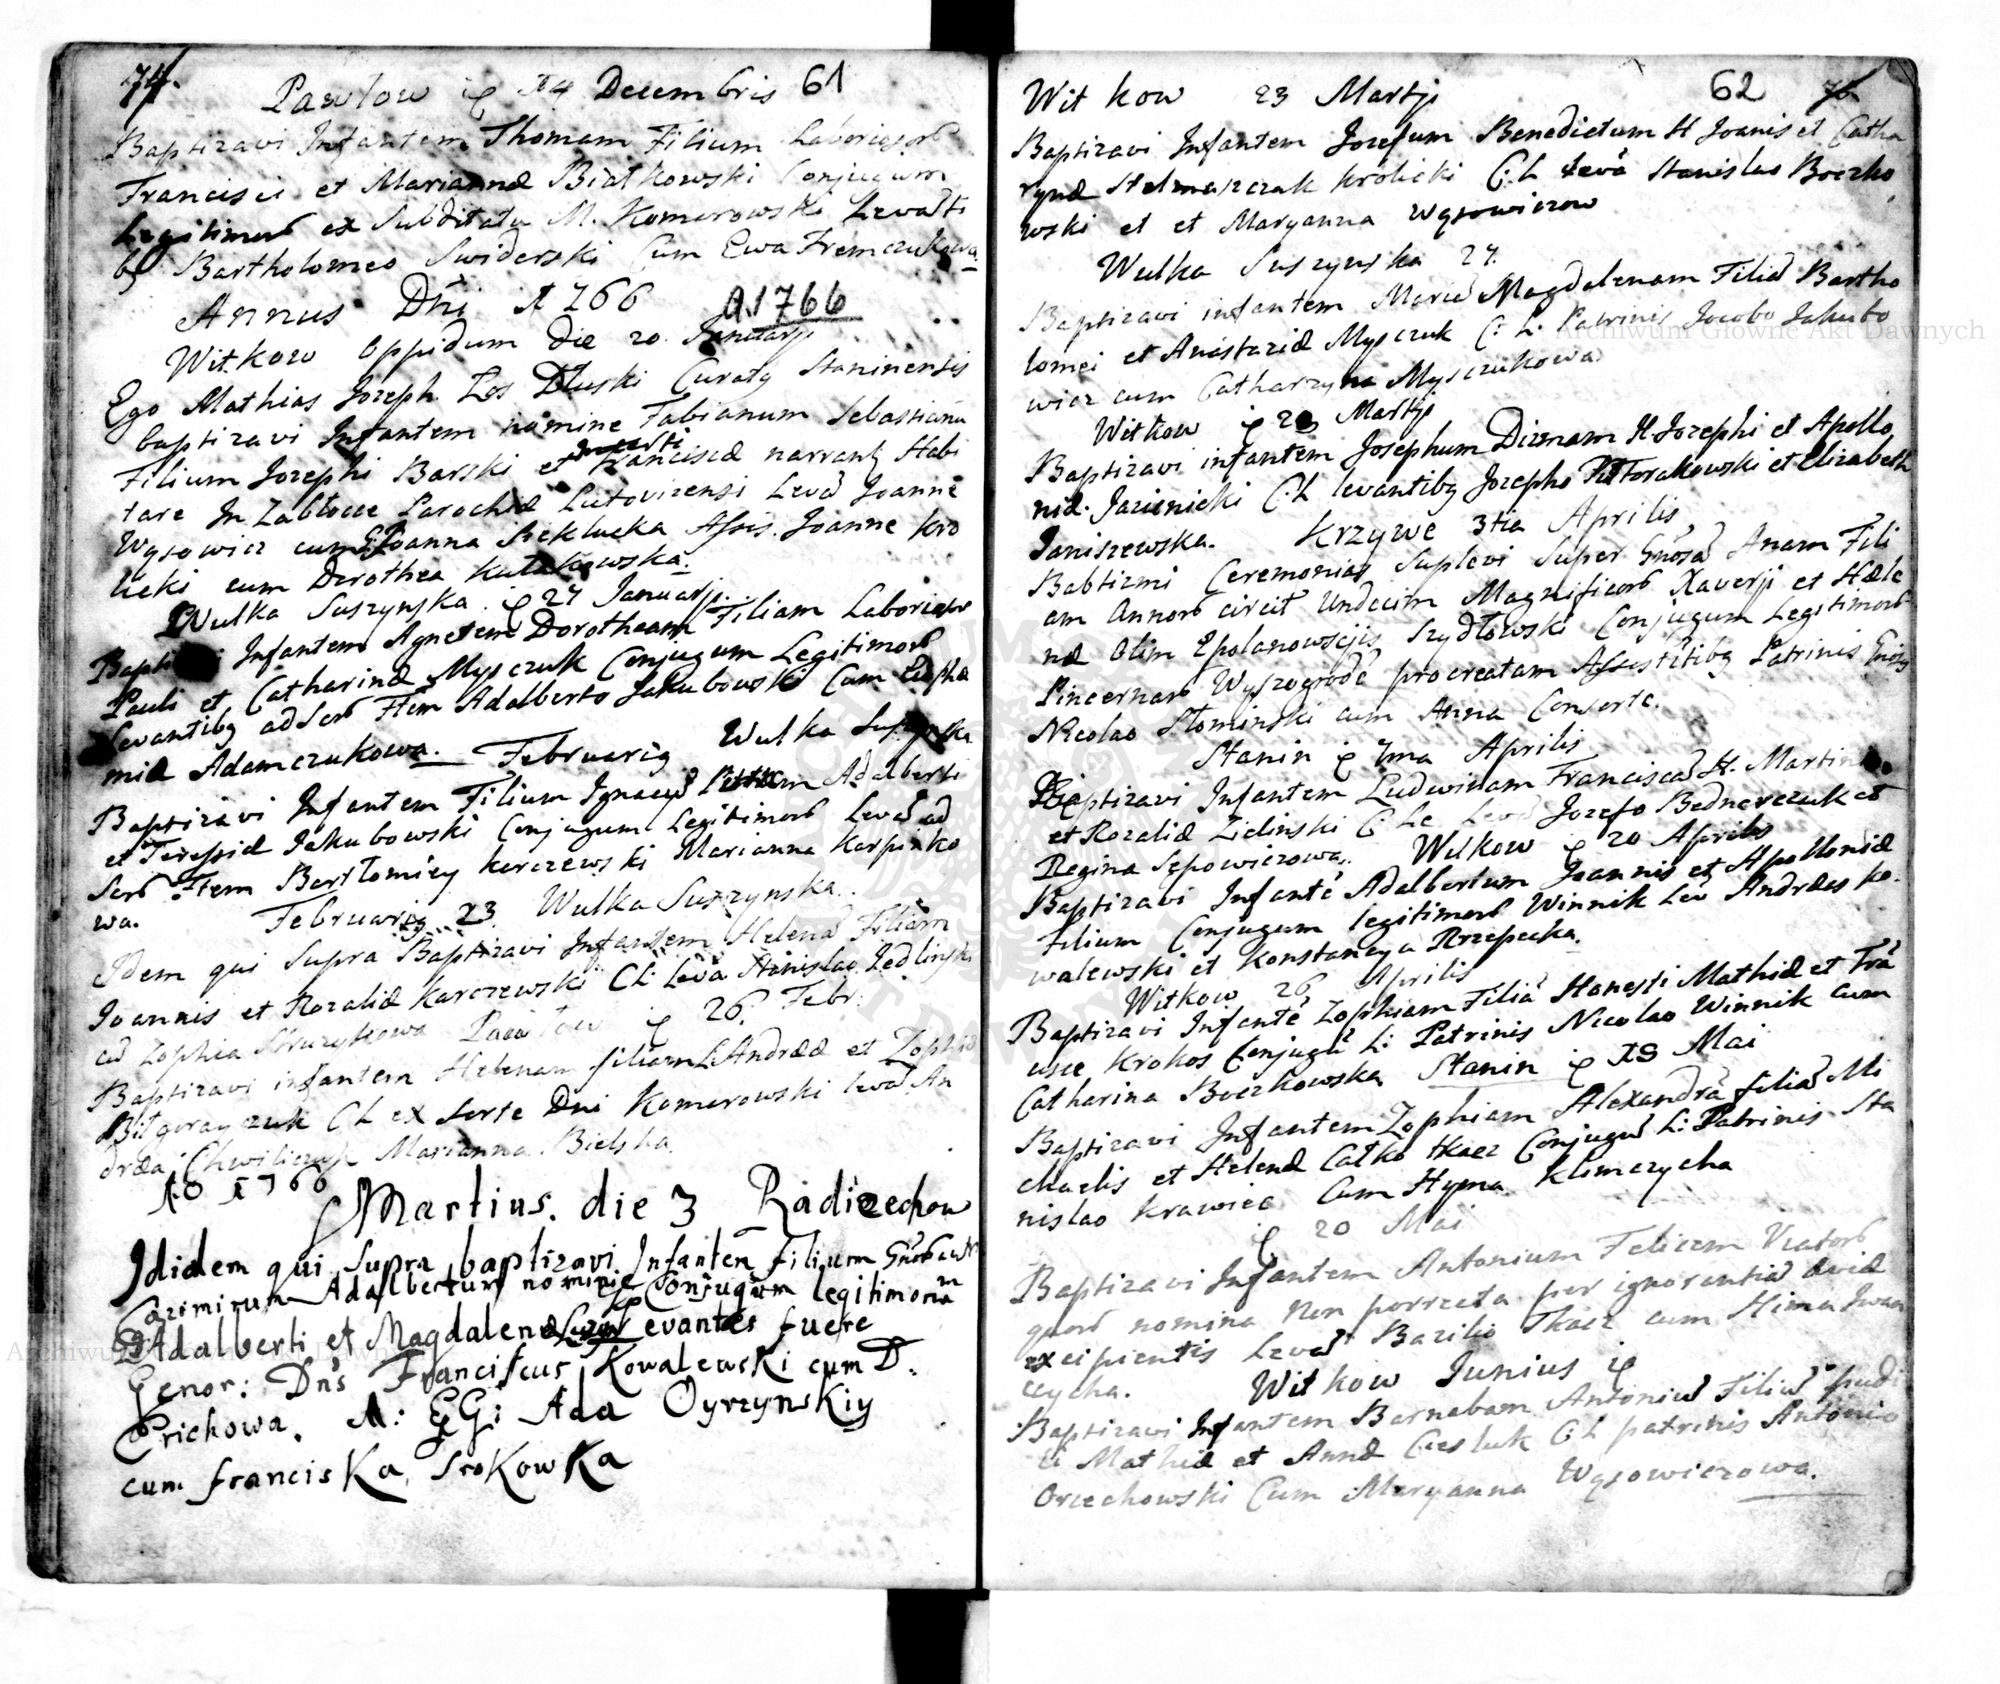 74.
Pawlow ię 14 Decembris 61
Baptizavi Infantem Thomam Filium Laboriosor
Francisci et Mariannæ Białkowski Conjugum
Legitimor ex Subditatu M. Komorowski Levati
bg Bartholomeo Swiderski Cum Ewa Fremczukowa
Annus Dni 1766 A. 1766
Witkow Oppidum die 20 Januarÿ
Ego Mathias Joseph Los Dłuski Curatg Staninensis
baptizavi Infantem nomine Fabianum Sebastianu
Filium Jozephi Barski et Franciscæ narrant Habi
tare In Zabłocie Parochiæ Lutovizensi Leva Joanne
Wąsowicz cum Joanna Sieklucka Assis. Joanne Kro
licki cum Dorothea Kutakowska.
Wulka Suszynska ię 24 Januarÿ.
Infantem Agnetem Dorotheam Filiam Laborios
Pauli et Catharinæ Mysczuk Conjugum Legitimor
Levantibg ad Ser Ftem Adalberto Jakubowski Cum
miæ Adamczukowa. Februarig Wulka
Baptizavi Infantem Filium Ignacy Adalberti
et Teressiæ Jakubowski Conjugum Legitimor Leva ad
Ser Ftem Bartłomiey Karczewski Marianna Karpinko
wa. Februarig 23. Wulka Suszynska.
Idem qui Supra Baptizavi Infantem Helena Filiam
Joannis et Rozaliæ Karczewski CL Leva Stanislao Redlinski
ad Zophia Pawlow ię 26. Febr:
Baptizavi infantem Helenam filiam L Andreæ et Zophiæ
Biłgorayczuk CL ex Sorte Dni Komorowski leva An
dræa Chwiliczuk Marianna Bielska.
A.D 1766
Martius. die 3 Radizechow
Ididem qui Supra baptizavi Infanten filium
Cazimirum Adalbertum nomine Conjugum legitimorum
Adalberti et Magdalenæ evantes fuere
Genor: Dns Franciscus Kowalewski cum D.
Erichowa. A: GG: Ada Oyrzynskiy
cum franciska, Srokowka
Witkow 23 Martÿ 62
Baptizavi Infantem Jozefum Benedictum H Joanis et Catha
rynæ Stelmaszczuk Krolicki C: L Leva Stanislao Boczko
wski et et Maryanna Wąsowiczow
Wulka Suszynska 27.
Baptizavi infantem Maria Magdalenam Filia Bartho
lomei et Anastaziæ Mysczuk C: L. Patrinis Jacobo Jakubo
wicz cum Catharzyna Mysczukowa
Witkow ię Martÿ
Baptizavi infantem Josephum Dizmam H Jozephi et Apollo
niæ. Jazienicki C: L levantibg Jozepho Torakowski et Elizabeth
Janiszewska. Krzywe 3tia Aprilis
Babtizmi Ceremonias Suplevi Super Gnosa Anam Fili
am Annor circit Undecim Magnificor Xaverÿ et Hæle
næ Olim Szydłowski Conjugum Legitimor
Pincernar Wyszogrode procreatam Assistetibg Patrinis
Nicolao Słominski cum Anna Consorte.
Stanin ię 7ma Aprilis
Baptizavi Infantem Ludwinam Francisca H. Martin
et Rozaliæ Zielinski C: Le Leva Jozefo Bednarczuk et
Regina Sepowiczowa. Witkow ię 20 Aprilis
Baptizavi Infante Adalbertum Joannis et Apolloniæ
Filium Conjugum legitimor Winnik Lev Andræas Ko
walewski et Konstancya Rzepecka.
Witkow 26 Aprilis
Baptizavi Infante Zophiam Filia Honesti Mathiæ et Fra
Krokos Conjugu L: Patrinis Nicolao Winnik cum
Catharina Boczkowska Stanin ię 18 Mai
Baptizavi Infantem Zophiam Alexandra filia Mi
chaelis et Helenæ Całko tkacz Conjugu L: Patrinis Sta
nislao Krawiec Cum Hyma Klimczycha
ię 20 Mai
Baptizavi Infantem Antonium Felicem Viator
quor nomina Non porrecta per ignorantia Avidæ
excipientis Leva Bazilio Tkacz cum Hima Iwan
czycha. Witkow Junius ię
Baptizavi Infantem Barnabam Antoniu Filiu
Mathiæ et Annæ C: L patrinis Antonio
Orzechowski Cum Maryanna Wąsowiczowa.
Archiwum Główne Akt Dawnych